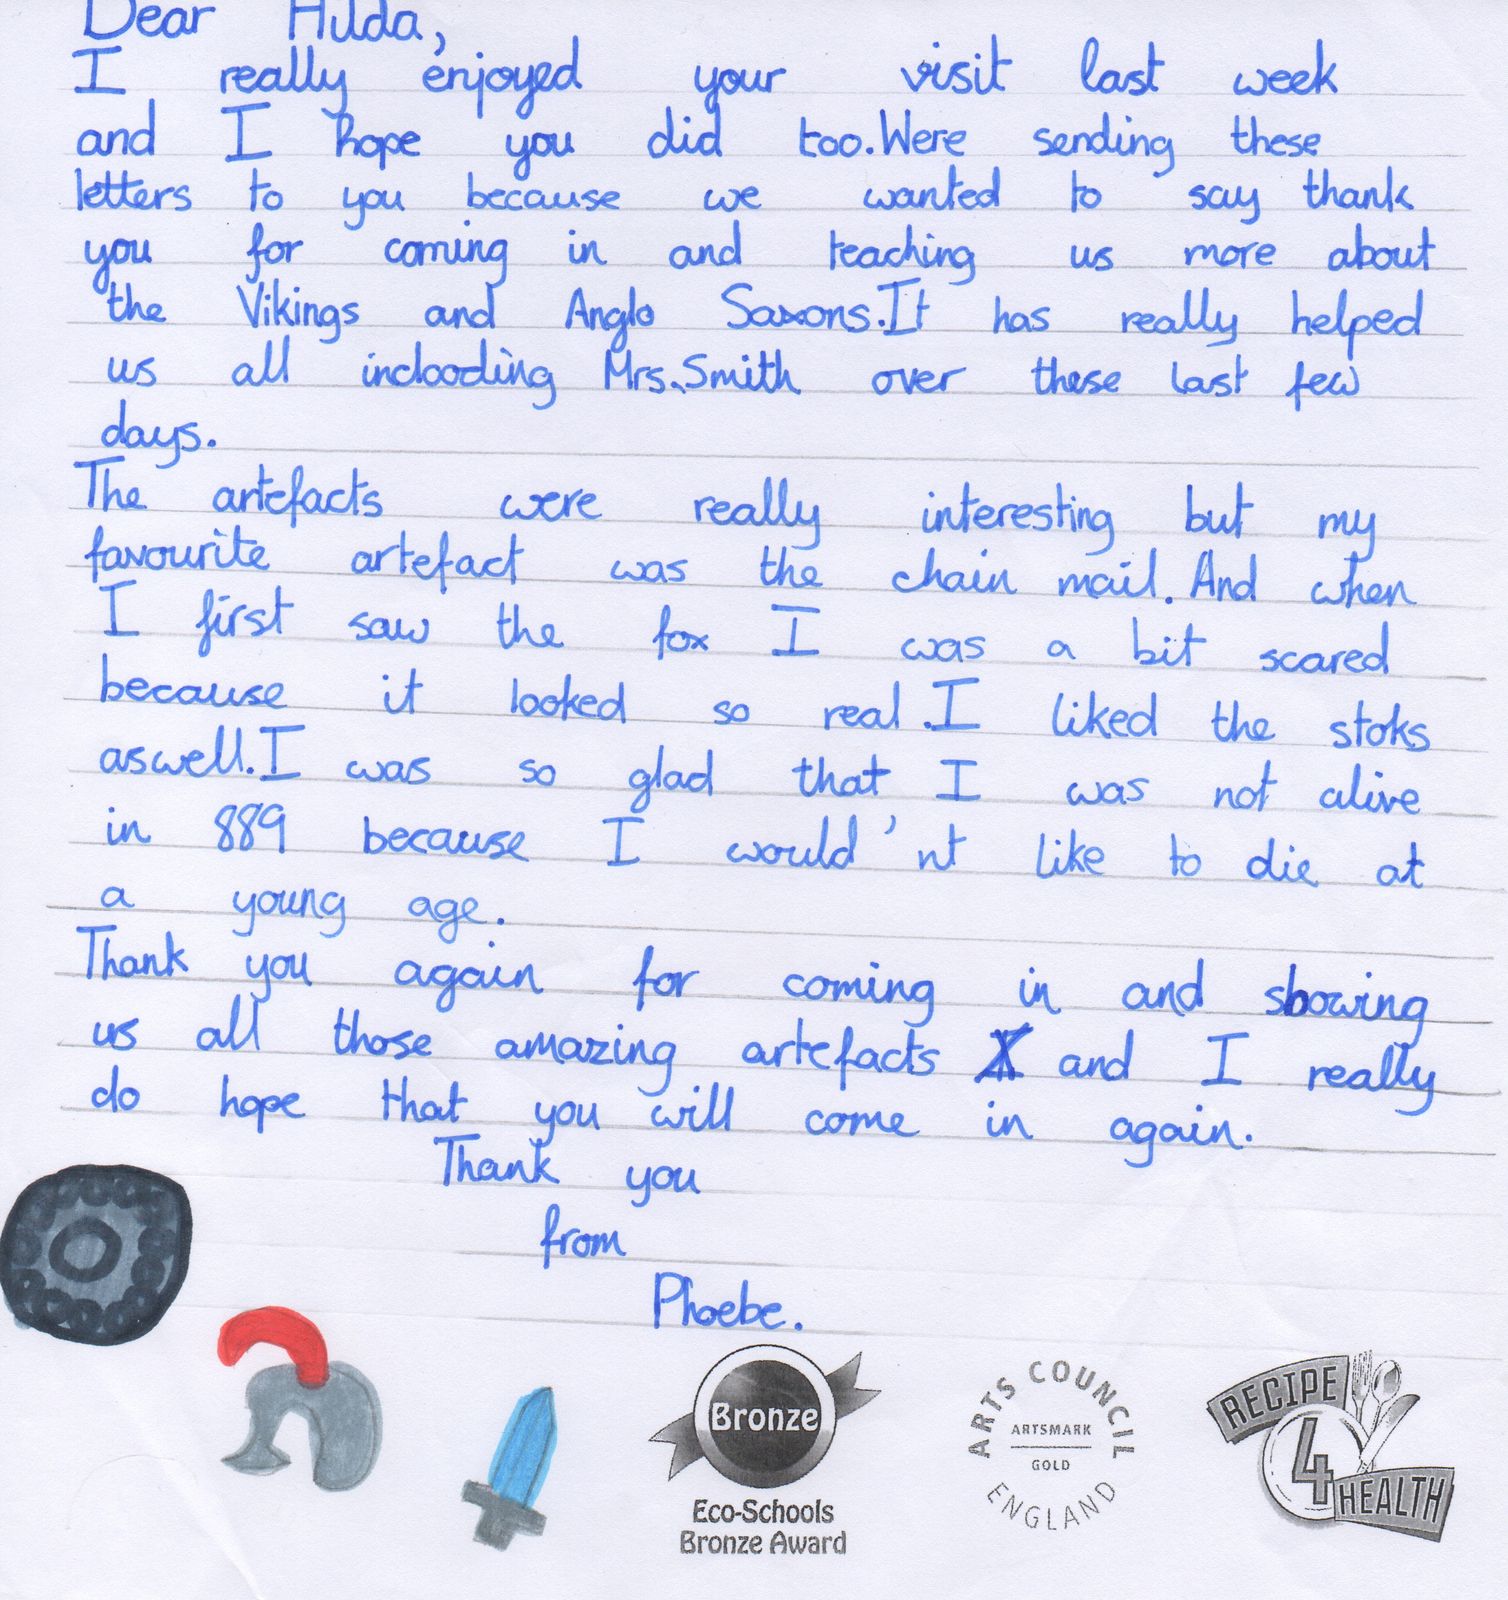 Dear Hilda,
I really enjoyed your visit last week
and I hope you did too. Were sending these
letters to you because we wanted to say thank
you for coming in and teaching us more about
the Vikings and Anglo Saxons. It has really helped
us all inclooding Mrs. Smith over these last few
days.
The artefacts were really interesting but my
favourite artefact was the chain mail. And when
I first saw the fox I was a bit scared
because it looked so real. I liked the stoks
aswell. I was so glad that I was not alive
in 889 because I would'nt like to die at
a young age.
Thank you again for coming in and showing
us all those amazing artefacts and I really
do hope that you will come in again.
Thank you
from
Phoebe.
Bronze
Eco-Schools
Bronze Award
ARTS COUNCIL
ARTSMARK
GOLD
ENGLAND
RECIPE
4
HEALTH